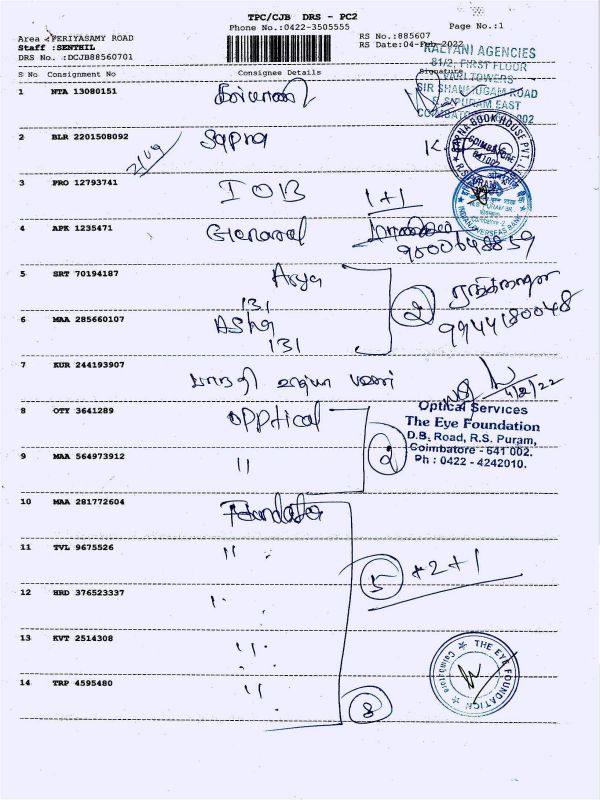 TPC/CJB DRS - PC2
Phone No.:0422-3505555
Page No.:1
Area : PERIYASAMY ROAD
RS No.:885607
Staff :SENTHIL
RS Date:04-Feb-2022
DRS No. :DCJB88560701
KALYANI AGENCIES
81/2, FIRST FLOOR
PARI TOWERS
SIR SHANMUGAM ROAD
R.S.PURAM EAST
S No Consignment No Consignee Details Signature
1 NTA 13080151 கல்யாணி
2 BLR 2201508092 Sapna
SAPNA BOOK HOUSE PVT. LTD.
COIMBATORE
641002
3 PRO 12793741 IOB 1+1
INDIAN OVERSEAS BANK
4 APK 1235471 General
9500648859
5 SRT 70194187 Arya
131
2
9944180048
6 MAA 285660107 Asha
131
7 KUR 244193907
4/2/22
8 OTY 3641289 opptical
2
Optical Services
The Eye Foundation
D.B. Road, R.S. Puram,
Coimbatore - 641 002.
Ph : 0422 - 4242010.
9 MAA 564973912 "
10 MAA 281772604 Foundation
11 TVL 9675526 "
5 +2+1
12 HRD 376523337 "
13 KVT 2514308 "
14 TRP 4595480 "
8
THE EYE FOUNDATION
Coimbatore